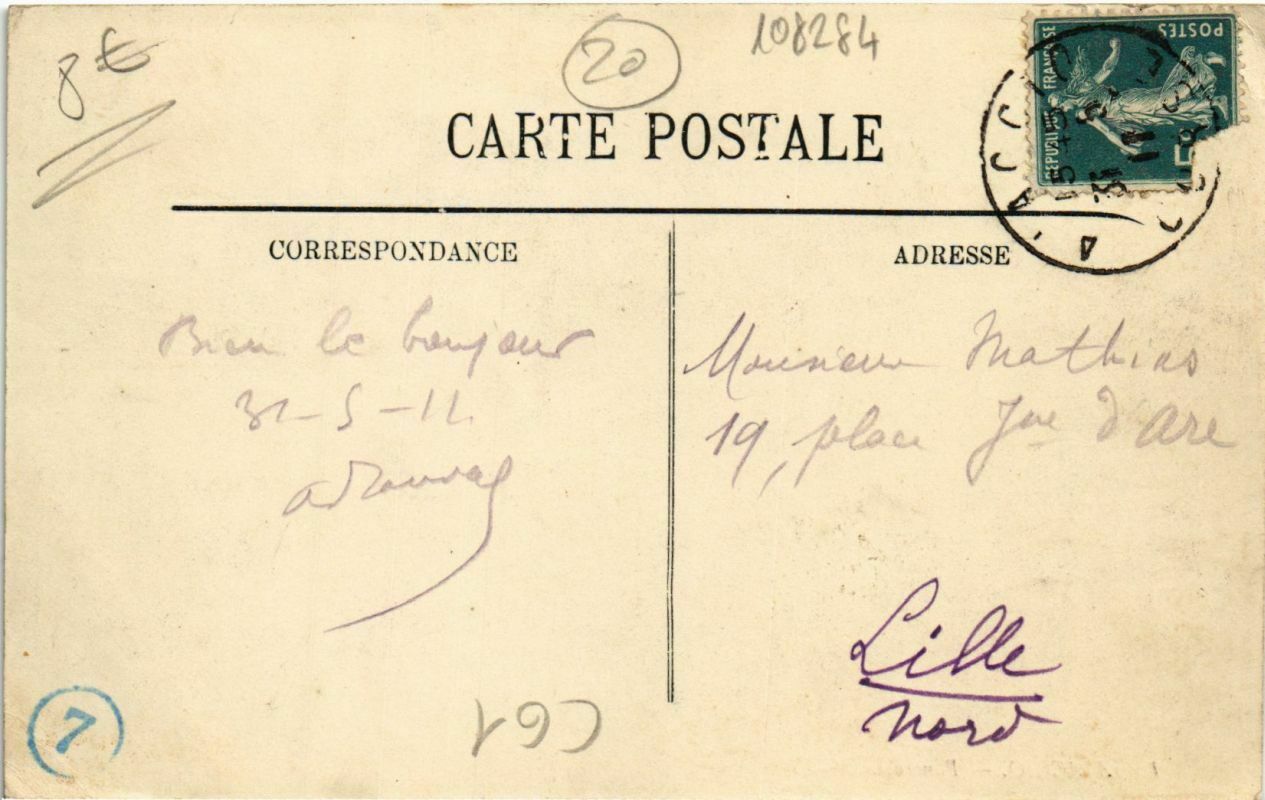 8€
20
108284
CARTE POSTALE
REPUBLIQUE FRANÇAISE
POSTES
5
AJACCIO
CORSE
CORRESPONDANCE
Bien le bonjour
31-5-11
ADRESSE
Monsieur Mathias
19, place Jne d'Arc
Lille
Nord
7
C61